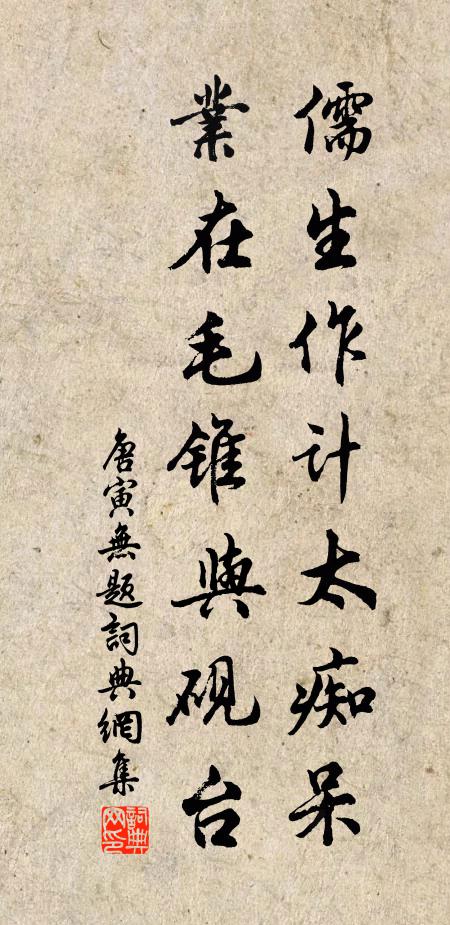 儒生作计太痴呆
業在毛錐與硯台
唐寅無题詞典網集
詞典网印